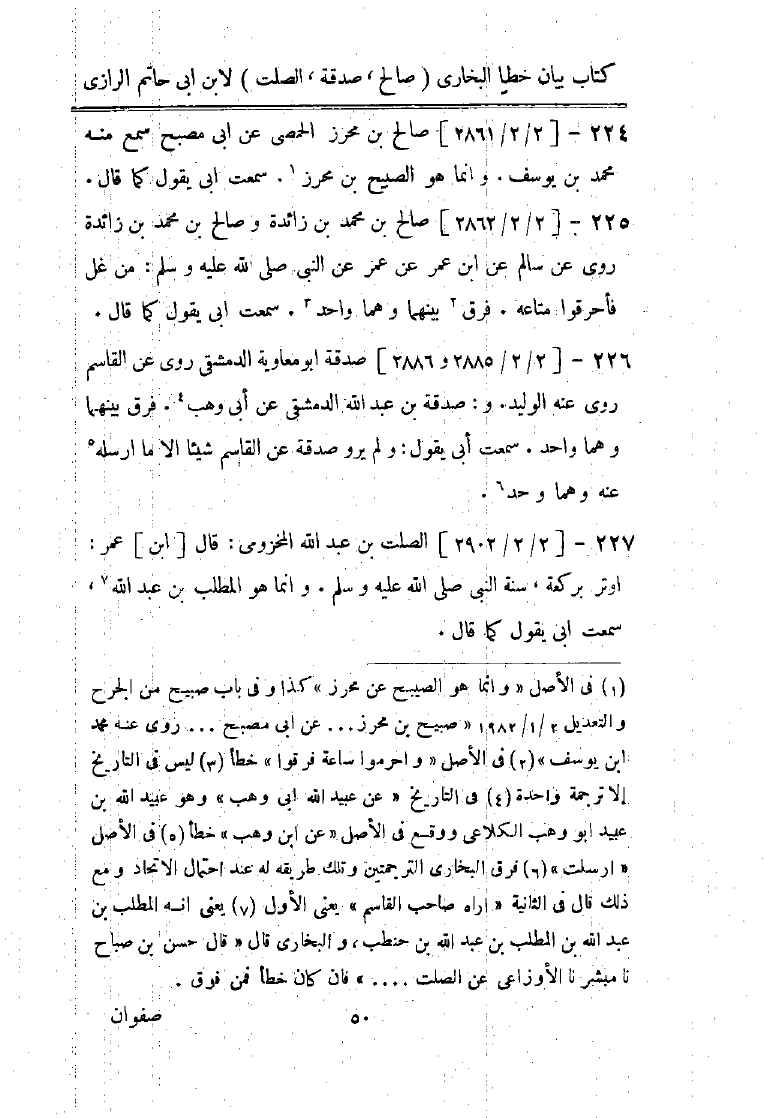 كتاب بيان خطإ البخارى ( صالح ، صدقة ، الصلت ) لابن ابى حاتم الرازى
٢٢٤ – [ ٢/٢/ ٢٨٦١ ] صالح بن محرز الحمصى عن ابى مصبح سمع منه
محمد بن يوسف . و انما هو الصبيح بن محرز ١ . سمعت ابى يقول كما قال .
٢٢٥ – [ ٢/٢/ ٢٨٦٢ ] صالح بن محمد بن زائدة و صالح بن محمد بن زائدة
روى عن سالم عن ابن عمر عن عمر عن النبى صلى الله عليه و سلم : من غل
فأحرقوا متاعه . فرق ٢ بينهما و هما واحد ٣ . سمعت ابى يقول كما قال .
٢٢٦ – [ ٢/٢/ ٢٨٨٥ و ٢٨٨٦ ] صدقة ابو معاوية الدمشقى روى عن القاسم
روى عنه الوليد. و : صدقة بن عبد الله الدمشقى عن أبى وهب ٤ . فرق بينهما
و هما واحد . سمعت أبى يقول : و لم يرو صدقة عن القاسم شيئا الا ما ارسله ٥
عنه و هما و حد ٦ .
٢٢٧ – [ ٢/٢/ ٢٩٠٢ ] الصلت بن عبد الله المخزومى : قال [ ابن ] عمر :
اوتر بركعة ، سنة النبى صلى الله عليه و سلم . و انما هو المطلب بن عبد الله ٧ ،
سمعت ابى يقول كما قال .
(١) فى الأصل « و انما هو الصبيح عن محرز » كذا و فى باب صبيح من الجرح
و التعديل ٢ /١/ ١٩٨٢ « صبيح بن محرز ... عن ابى مصبح ... روى عنه محمد
ابن يوسف » (٢) فى الأصل « و احرموا ساعة فرقوا » خطأ (٣) ليس فى التاريخ
إلا ترجمة واحدة (٤) فى التاريخ « عن عبيد الله ابى وهب » وهو عبيد الله بن
عبيد ابو وهب الكلاعى ووقع فى الأصل « عن ابن وهب » خطأ (٥) فى الأصل
« ارسلت » (٦) فرق البخارى الترجمتين و تلك طريقه له عند احتمال الاتحاد و مع
ذلك قال فى الثانية « اراه صاحب القاسم » يعنى الأول (٧) يعنى انه المطلب بن
عبد الله بن المطلب بن عبد الله بن حنطب ، و البخارى قال « قال حسن بن صباح
نا مبشر نا الأوزاعى عن الصلت .... » فان كان خطأ فمن فوق .
٥٠ صفوان